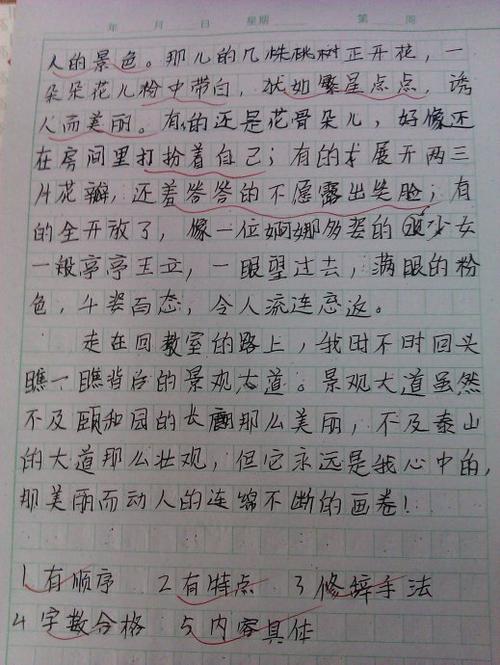 年 月 日 星期 第 周
人的景色。那儿的几株桃树正开花，一
朵朵花儿粉中带白，犹如繁星点点，诱
人而美丽。有的还是花骨朵儿，好像还
在房间里打扮着自己；有的才展开两三
片花瓣，还羞答答的不愿露出笑脸；有
的全开放了，像一位婀娜多姿的少女
一般亭亭玉立，一眼望过去，满眼的粉
色，千姿百态，令人流连忘返。
走在回教室的路上，我时不时回头
瞧一瞧背后的景观大道。景观大道虽然
不及颐和园的长廊那么美丽，不及泰山
的大道那么壮观，但它永远是我心中的，
那美丽而动人的连绵不断的画卷！
1有顺序 2有特点 3修辞手法
4字数合格 5内容具体